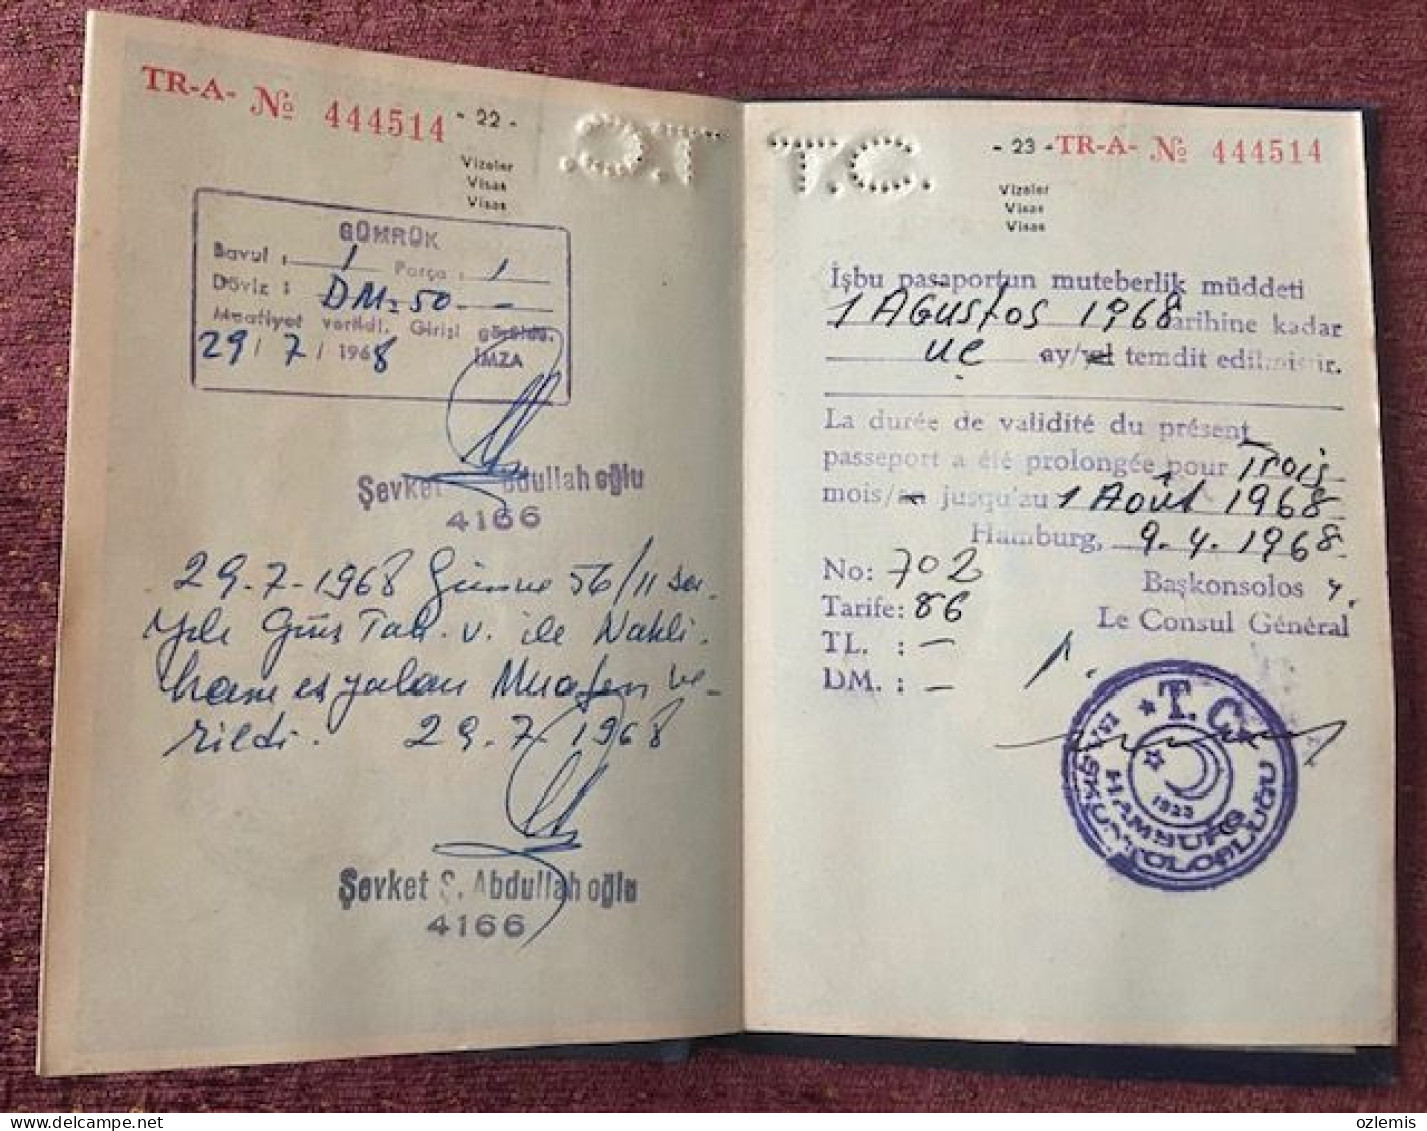 TR-A- № 444514
- 22 -
Vizeler
Visas
Visas
GÜMRÜK
Bavul : 1 Parça : 1
Döviz : DM: 50 - -
Muafiyet verildi. Girişi görüldü.
29 / 7 / 1968 İMZA
Şevket Abdullahoğlu
4166
29-7-1968 56/11
ile Nakli
hane eşyaları Muafen ve-
rildi. 29-7-1968
Şevket Ş. Abdullahoğlu
4166
T.C.
- 23 - TR-A- № 444514
Vizeler
Visas
Visas
İşbu pasaportun muteberlik müddeti
1 AGUSTOS 1968 tarihine kadar
üç ay/yıl temdit edilmiştir.
La durée de validité du présent
passeport a été prolongée pour Trois
mois/an jusqu'au 1 Août 1968
Hamburg, 9.4.1968
No: 702
Başkonsolos
Tarife: 86
Le Consul Général
TL. : -
DM. : -
T. C.
BAŞKONSOLOSLUĞU
HAMBURG
1923
delcampe.net
ozlemis